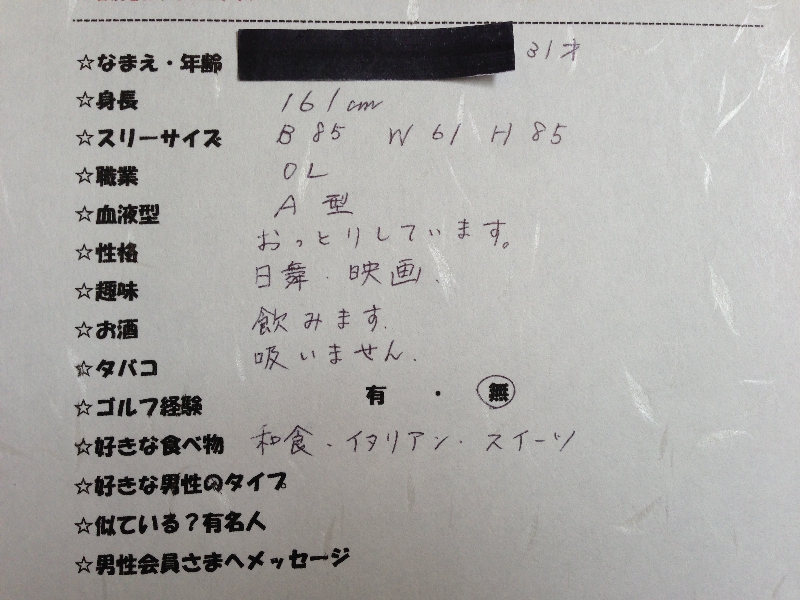 ☆なまえ・年齢 31才
☆身長 161cm
☆スリーサイズ B 85 W 61 H 85
☆職業 OL
☆血液型 A 型
☆性格 おっとりしています。
☆趣味 日舞・映画.
☆お酒 飲みます.
☆タバコ 吸いません.
☆ゴルフ経験 有 ・ 無
☆好きな食べ物 和食・イタリアン・スイーツ
☆好きな男性のタイプ
☆似ている？有名人
☆男性会員さまへメッセージ